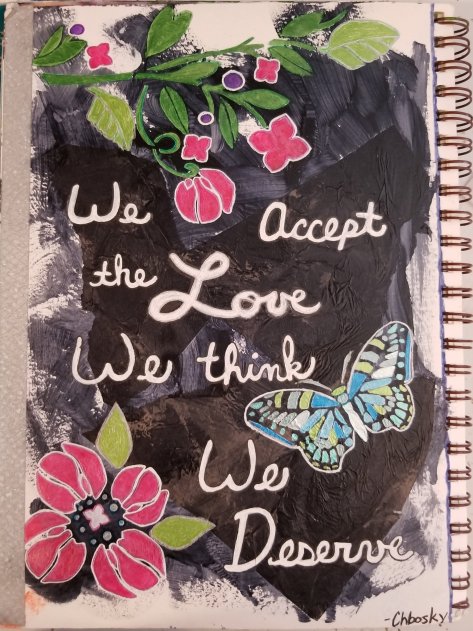 We Accept
the Love
We think
We
Deserve
-Chbosky